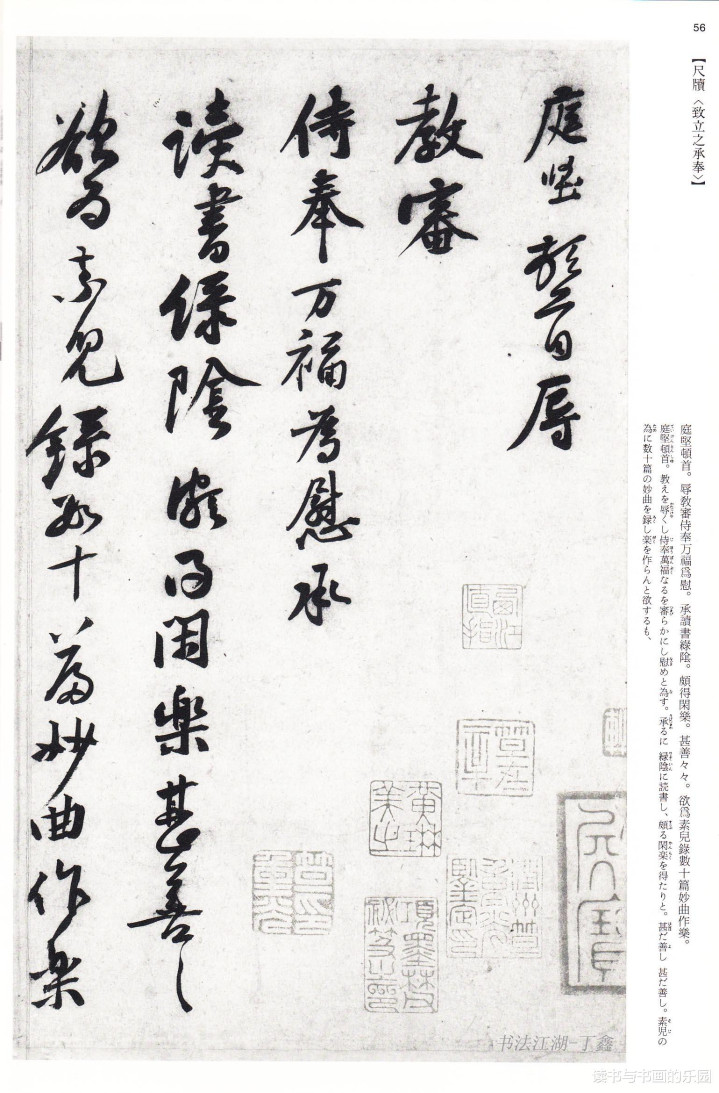 56
【尺牘〈致立之承奉〉】
庭堅頓首。辱教審侍奉万福爲慰。承讀書綠陰。頗得閑樂。甚善々々。欲爲素兒錄數十篇妙曲作樂。
庭堅頓首。教えを辱くし侍奉萬福なるを審らかにし慰めと為す。承るに 緑陰に読書し、頗る閑楽を得たりと。甚だ善し 甚だ善し。素児の
為に数十篇の妙曲を録し楽を作らんと欲するも、
庭堅頓首辱
教審
侍奉万福為慰承
讀書綠陰頗得閑樂甚善〻
欲为素兒錄數十篇妙曲作樂
黄琳
美之
項墨林
祕笈之印
书法江湖-丁鑫
读书与书画的乐园